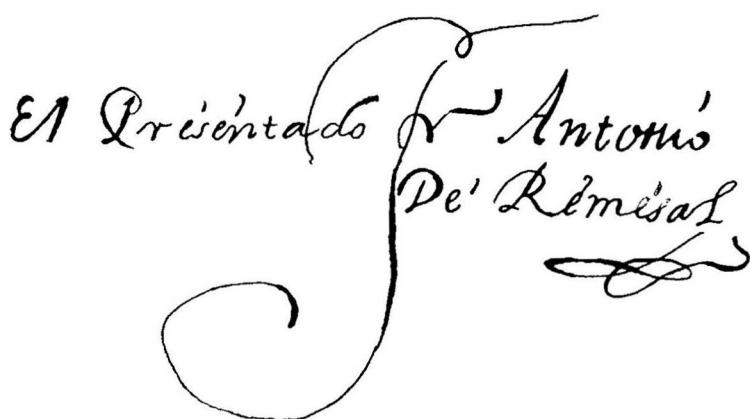 El Presentado fr Antonio
De Remesal